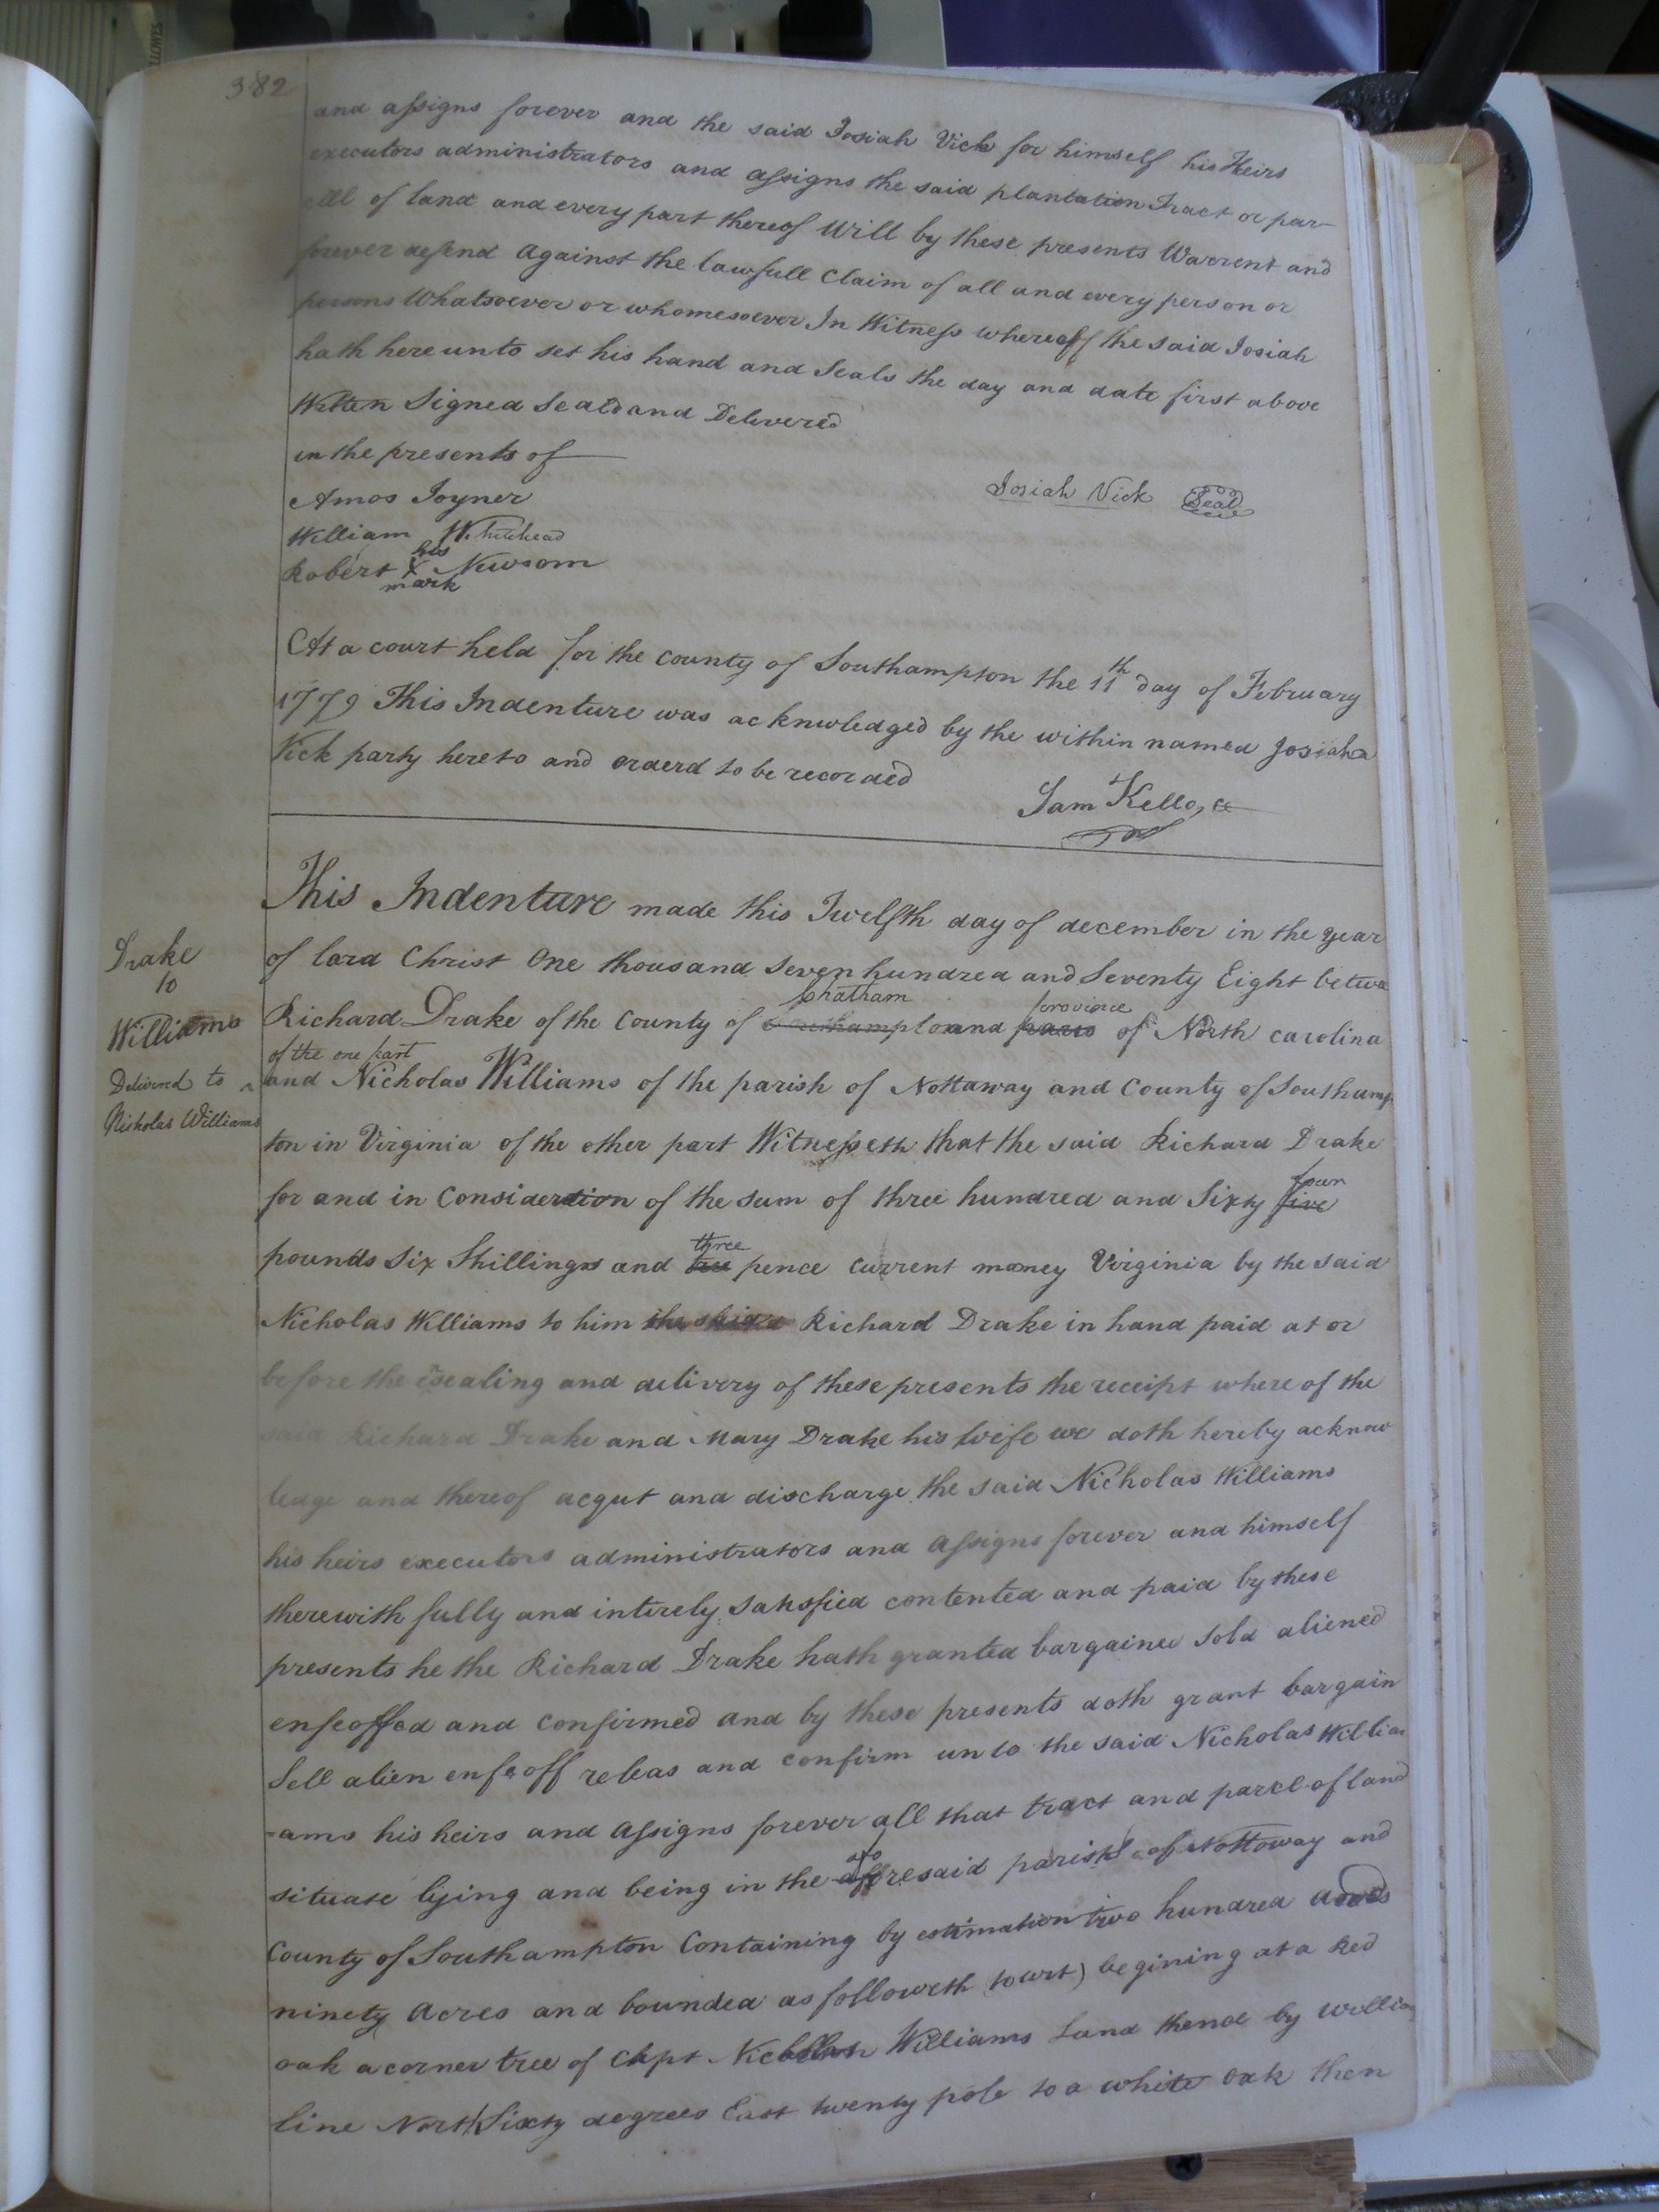 382
and assigns forever and the said Josiah Vick for himself his Heirs
executors administrators and assigns the said plantation Tract or par-
cill of land and every part thereof Will by these presents Warrent and
forever defend against the lawfull Claim of all and every person or
persons Whatsoever or whomesoever In Witness whereoff the said Josiah
hath hereunto set his hand and Seals the day and date first above
Witten Signed Seald and Delivered
in the presents of
Amos Joyner
Josiah Vick Seal
William Whitehead
his
Robert X Newsom
mark
At a court held for the county of Southampton the 11th day of February
1779 This Indenture was acknwledged by the within named Josiah
Vick party hereto and orderd to be recorded
Sam Kello, Ct
This Indenture made this Twelfth day of december in the year
of lord Christ One thousand Seven hundred and Seventy Eight betwe
Drake
to
Williams
Delivered to
Nicholas Williams
Chatham province
Richard Drake of the County of Southampton and of North carolina
of the one part
and Nicholas Williams of the parish of Nottaway and County of Southamp
ton in Virginia of the other part Witnesseth that the said Richard Drake
four
for and in Consideration of the sum of three hundred and Sixty five
three
pounds Six Shillings and pence current money Virginia by the said
Nicholas Williams to him the said Richard Drake in hand paid at or
before the ensealing and delivery of these presents the receipt where of the
said Richard Drake and Mary Drake his Wife we doth hereby acknow
ledge and thereof acqut and discharge the said Nicholas Williams
his heirs executors administrators and assigns forever and himself
therewith fully and intirely satisfied contented and paid by these
presents he the Richard Drake hath granted bargained Sold aliened
enfeoffed and confirmed and by these presents doth grant bargain
Sell alien enfeoff releas and confirm unto the said Nicholas Willia
-ams his heirs and assigns forever all that tract and parcel of land
afo
situate lying and being in the affresaid parish of Nottoway and
County of Southampton Containing by estimation two hundred
ninety acres and bounded as followeth (to wit) begining at a Red
oak a corner tree of Capt Nicholas Williams Land thence by William
line North Sixty degrees East twenty pole to a white oak then